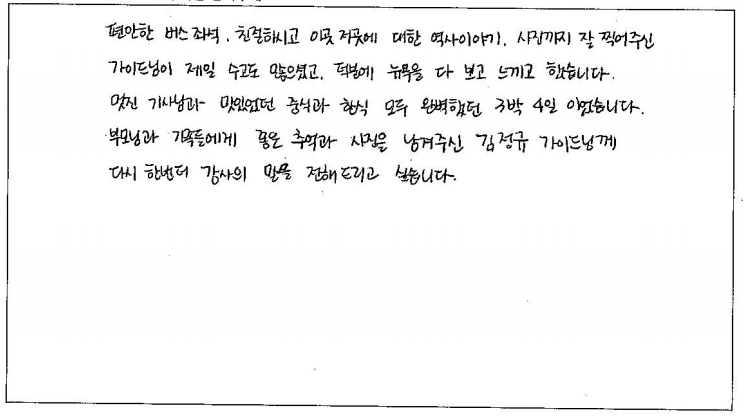 편안한 버스좌석, 친절하시고 이곳 저곳에 대한 역사이야기, 사진까지 잘 찍어주신
가이드님이 제일 수고도 많으셨고, 덕분에 뉴욕을 다 보고 느끼고 했습니다.
멋진 기사님과 맛있었던 중식과 한식 모두 완벽했던 3박 4일 이었습니다.
부모님과 가족들에게 좋은 추억과 사진을 남겨주신 김정규 가이드님께
다시 한번더 감사의 말을 전해드리고 싶습니다.